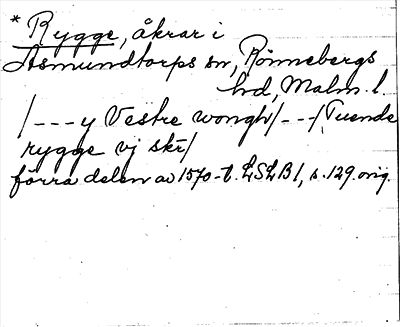 * Rygge, åkrar i
Asmundtorps sn, Rönnebergs
hd, Malm. l.
/---y Vestre wongh/---/, Tuende
rygge vj skr/
förra delen av 1570-t. LSLB1, s. 129. orig.